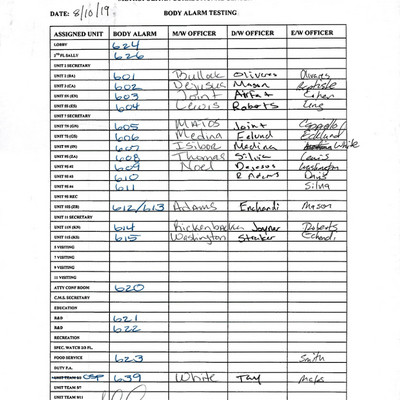 DATE: 8/10/19 BODY ALARM TESTING
ASSIGNED UNIT BODY ALARM M/W OFFICER D/W OFFICER E/W OFFICER
LOBBY 624
2ND FL SALLY 626
UNIT 2 SECRETARY
UNIT 2 601 Bullock Olivares Olivares
UNIT 3 602 Dejesus Mason Baptiste
UNIT 603 Joint
UNIT 604 Lewis Roberts Ling
UNIT 7 SECRETARY
UNIT 605 Joint
UNIT 606 Medina Eclund Ecklund
UNIT 607 Isibor Medina White
UNIT 608 Thomas Silvia Lewis
UNIT 609 Noel Dejesus Washington
UNIT 610 R Adams Davis
UNIT 611 Silva
UNIT REC
UNIT 612/613 Adams Mason
UNIT 11 SECRETARY
UNIT 614 Rickenbacker Joyner Roberts
UNIT 615 Washington Straker
5 VISITING
7 VISITING
9 VISITING
11 VISITING
ATTY CONF ROOM 620
C.M.S. SECRETARY
EDUCATION
R&D 621
R&D 622
RECREATION
SPEC. WATCH 2/3 FL.
FOOD SERVICE 623 Smith
DUTY P.A.
639 White Tay
UNIT TEAM B7
UNIT TEAM